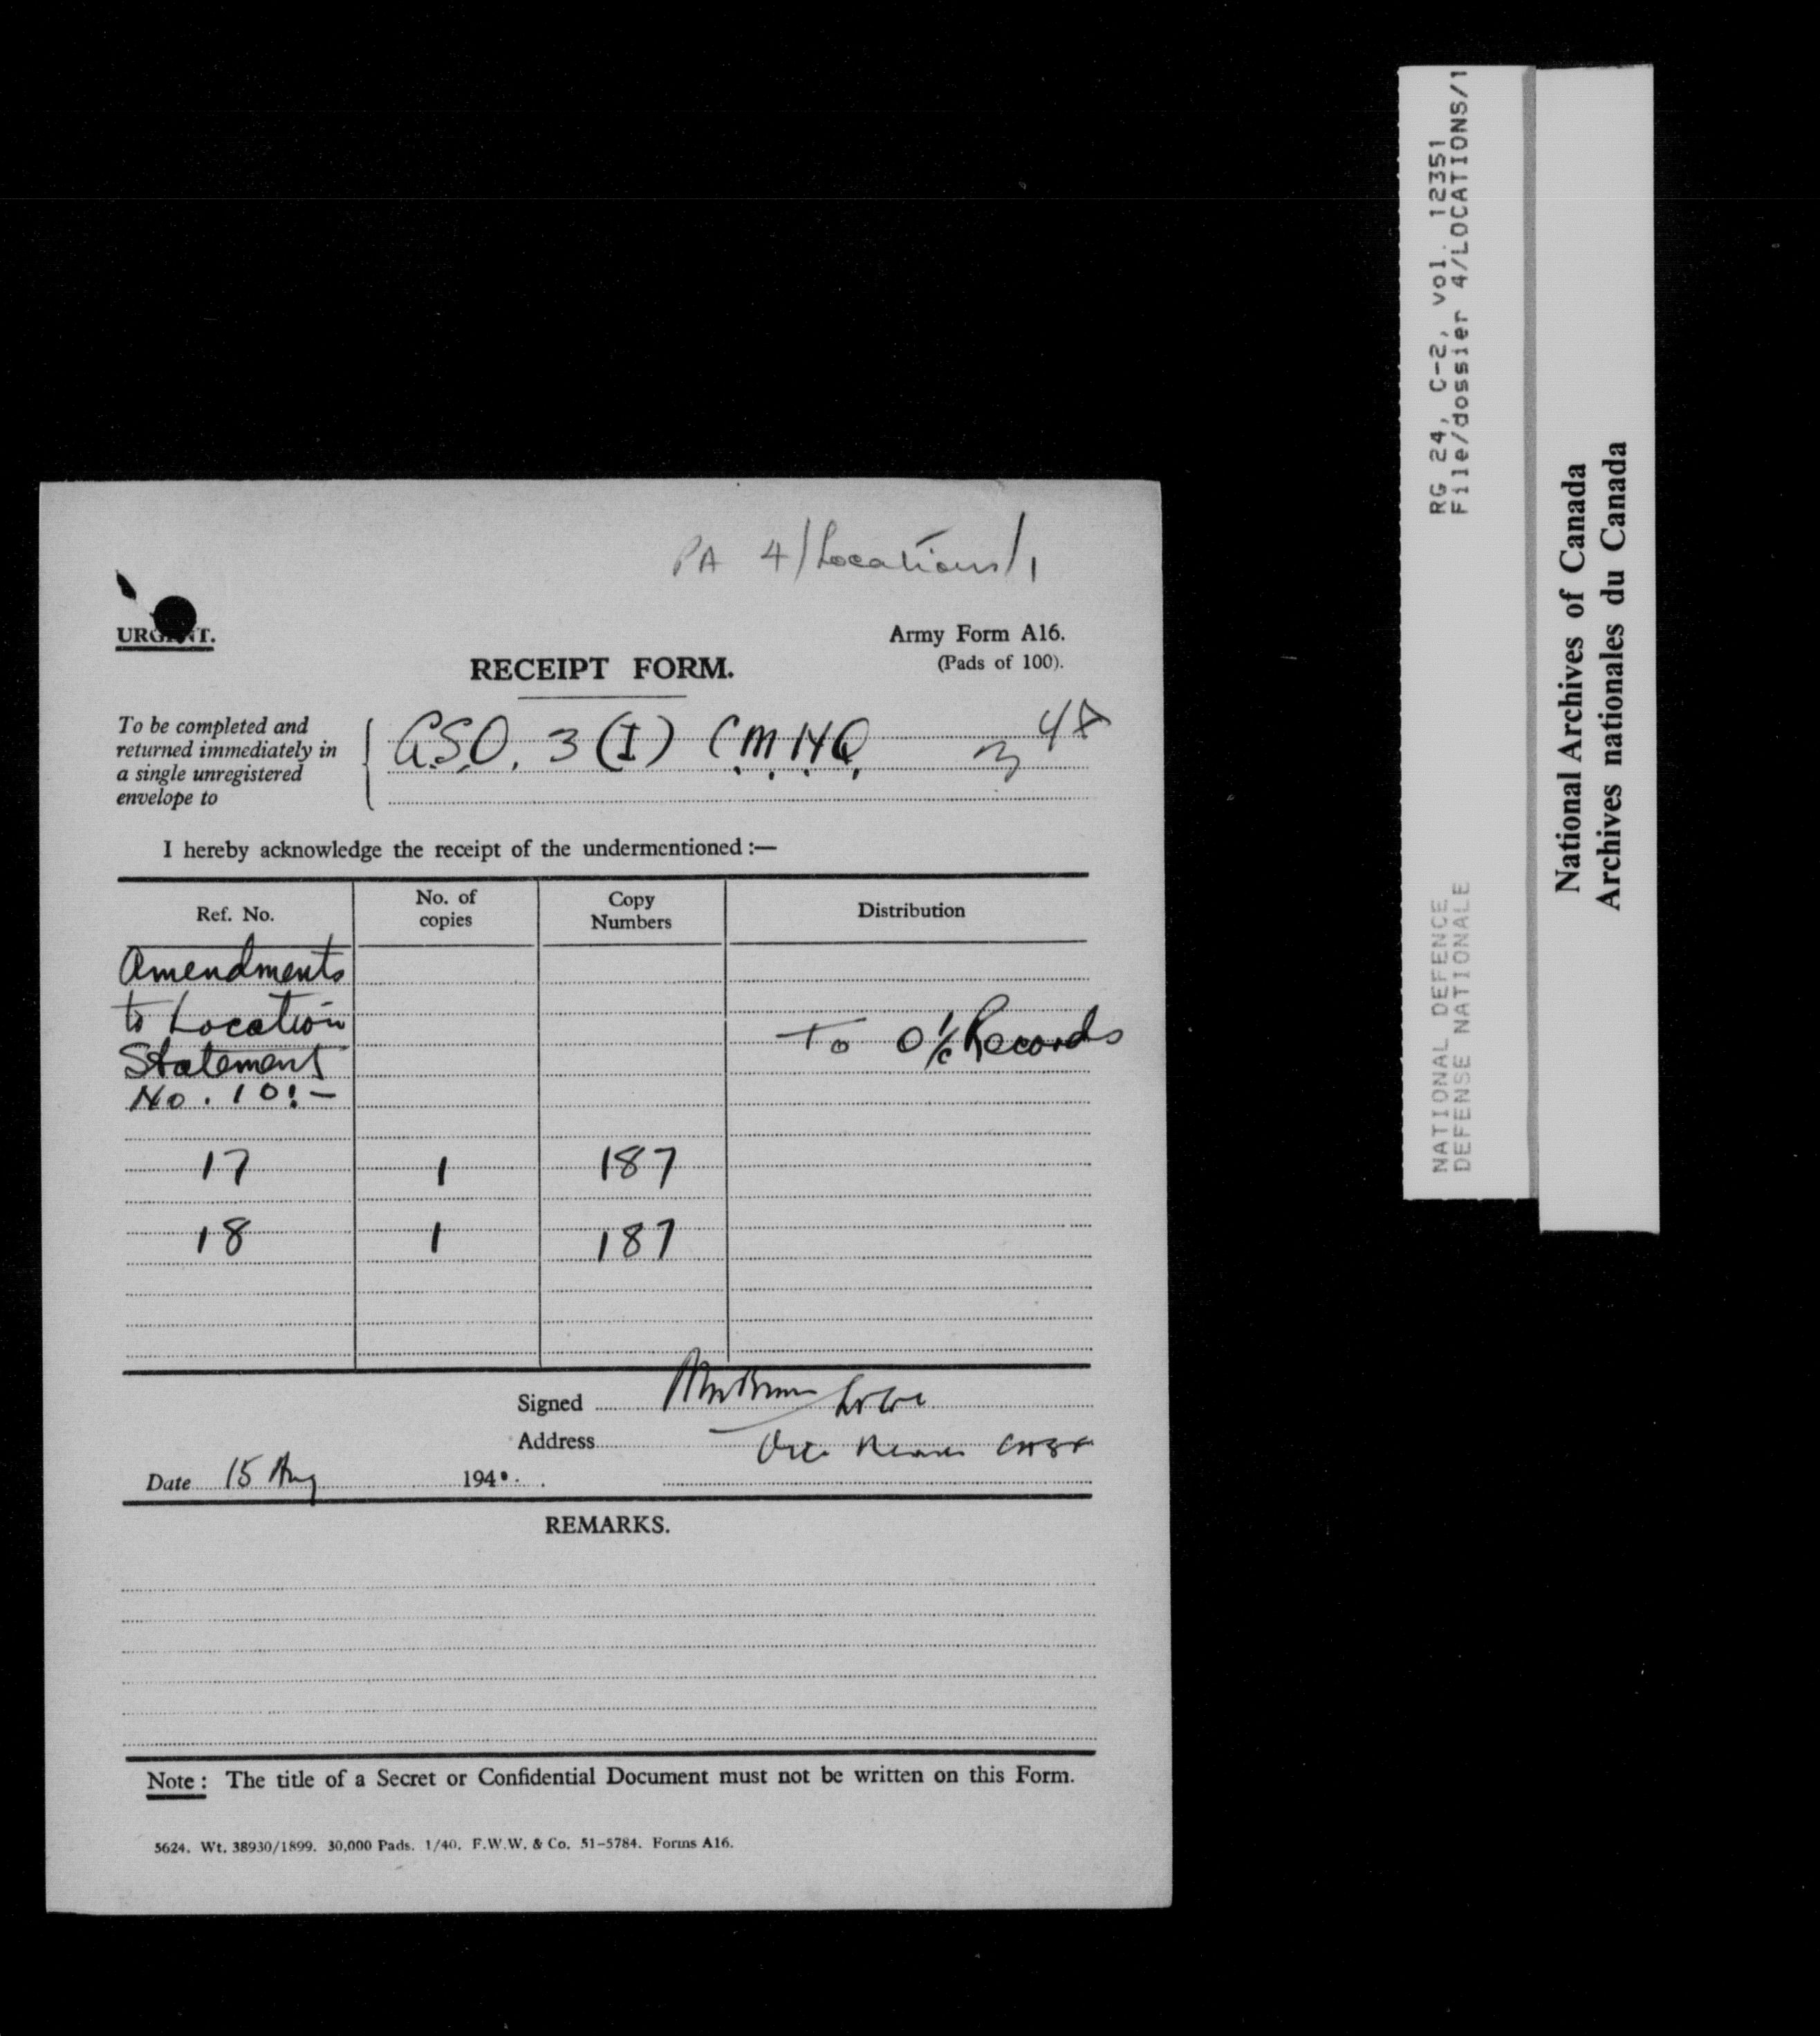 PA 4/Locations/1
URGENT.
Army Form A16.
(Pads of 100).
RECEIPT FORM.
To be completed and
returned immediately in
a single unregistered
envelope to
G.S.O. 3 (I) C.M.H.Q.
3 48
I hereby acknowledge the receipt of the undermentioned :—
Ref. No. No. of copies Copy Numbers Distribution
Amendments
to Location
Statement
No. 10:-
To O i/c Records
17 1 187
18 1 187
Signed
Address
Date 15 Aug 1940.
REMARKS.
Note: The title of a Secret or Confidential Document must not be written on this Form.
5624. Wt. 38930/1899. 30,000 Pads. 1/40. F.W.W. & Co. 51-5784. Forms A16.
RG 24, C-2, vol. 12351
File/dossier 4/LOCATIONS/1
NATIONAL DEFENCE
DEFENSE NATIONALE
National Archives of Canada
Archives nationales du Canada